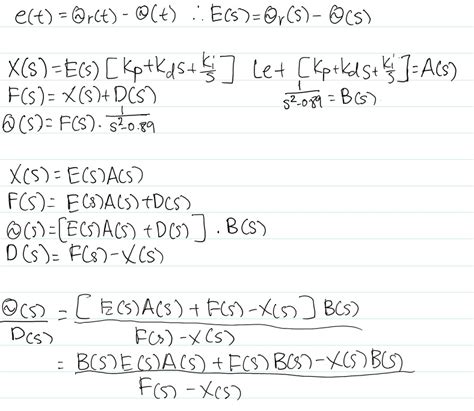 e(t) = Θr(t) - Θ(t) ∴ E(s) = Θr(s) - Θ(s)
X(s) = E(s) [Kp+Kds+Ki/s] Let [Kp+Kds+Ki/s] = A(s)
F(s) = X(s) + D(s) 1/(s²-0.89) = B(s)
Θ(s) = F(s) · 1/(s²-0.89)
X(s) = E(s)A(s)
F(s) = E(s)A(s)+D(s)
Θ(s) = [E(s)A(s) + D(s)] · B(s)
D(s) = F(s) - X(s)
Θ(s)/D(s) = [E(s)A(s) + F(s) - X(s)] B(s) / F(s) - X(s)
= B(s)E(s)A(s) + F(s)B(s) - X(s)B(s) / F(s) - X(s)